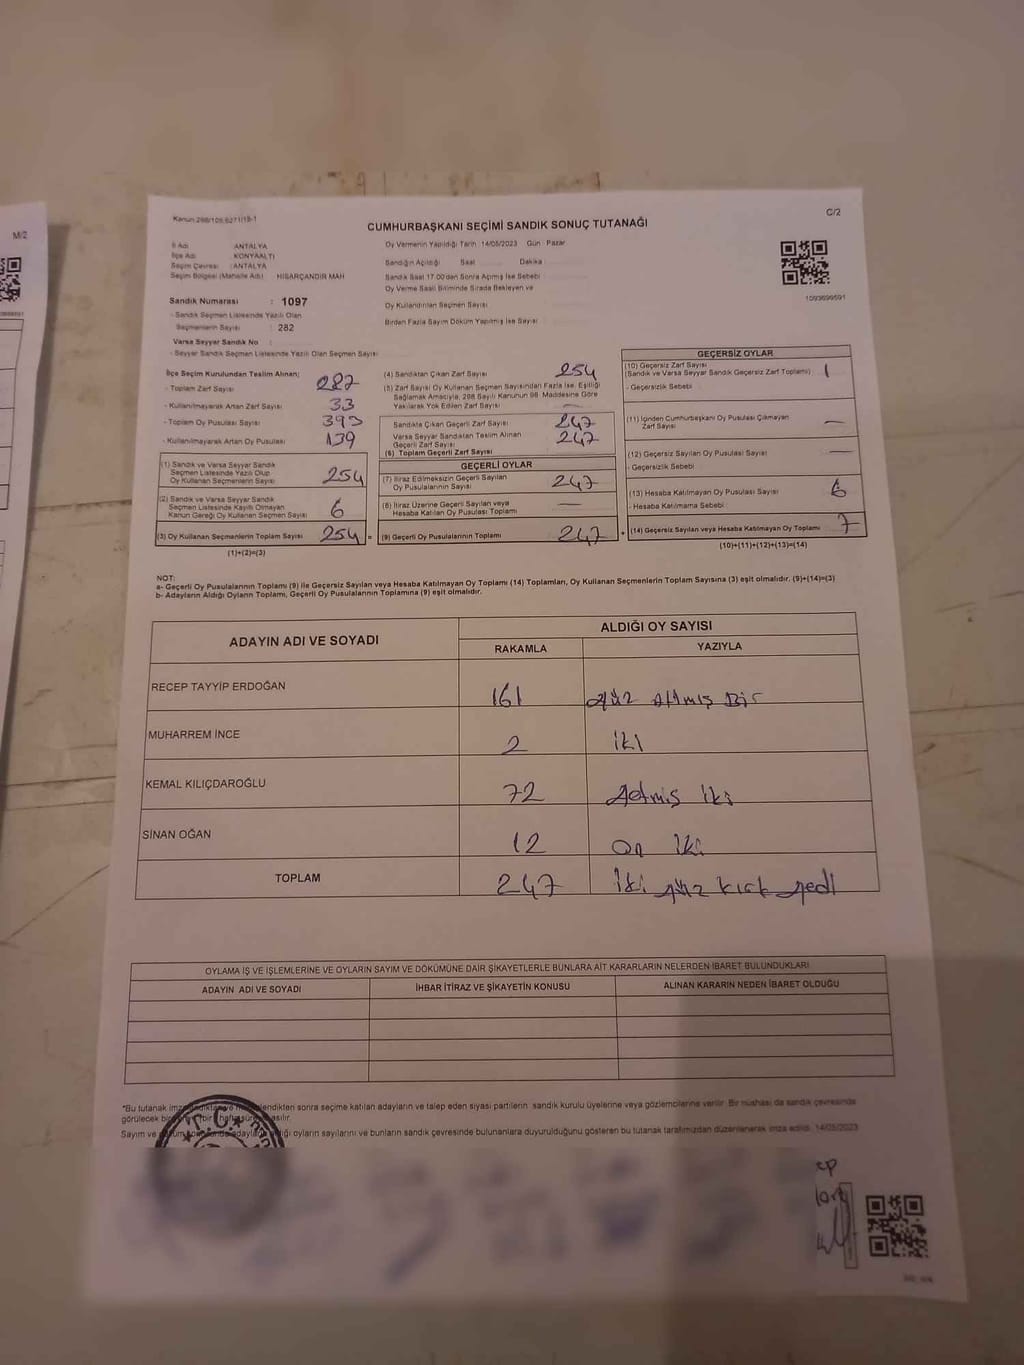 M/2
Kanun 298/105,6271/19-1
CUMHURBAŞKANI SEÇİMİ SANDIK SONUÇ TUTANAĞI
C/2
İl Adı ANTALYA
İlçe Adı : KONYAALTI
Seçim Çevresi : ANTALYA
Seçim Bölgesi (Mahalle Adı) : HISARÇANDIR MAH
Sandık Numarası : 1097
- Sandık Seçmen Listesinde Yazılı Olan
Seçmenlerin Sayısı : 282
Varsa Seyyar Sandık No :
- Seyyar Sandık Seçmen Listesinde Yazılı Olan Seçmen Sayısı
Oy Vermenin Yapıldığı Tarih :14/05/2023 Gün : Pazar
Sandığın Açıldığı Saat Dakika :
Sandık Saat 17.00'den Sonra Açılmış İse Sebebi
Oy Verme Saati Bitiminde Sırada Bekleyen ve
Oy Kullandırılan Seçmen Sayısı
Birden Fazla Sayım Döküm Yapılmış İse Sayısı
1093699591
İlçe Seçim Kurulundan Teslim Alınan;
- Toplam Zarf Sayısı 287
- Kullanılmayarak Artan Zarf Sayısı 33
- Toplam Oy Pusulası Sayısı 393
- Kullanılmayarak Artan Oy Pusulası 139
(1) Sandık ve Varsa Seyyar Sandık
Seçmen Listesinde Yazılı Olup
Oy Kullanan Seçmenlerin Sayısı 254
(2) Sandık ve Varsa Seyyar Sandık
Seçmen Listesinde Kayıtlı Olmayan
Kanun Gereği Oy Kullanan Seçmen Sayısı 6
(3) Oy Kullanan Seçmenlerin Toplam Sayısı 254 =
(1)+(2)=(3)
(4) Sandıktan Çıkan Zarf Sayısı 254
(5) Zarf Sayısı Oy Kullanan Seçmen Sayısından Fazla İse, Eşitliği
Sağlamak Amacıyla, 298 Sayılı Kanunun 98. Maddesine Göre
Yakılarak Yok Edilen Zarf Sayısı —
Sandıkta Çıkan Geçerli Zarf Sayısı 247
Varsa Seyyar Sandıktan Teslim Alınan
Geçerli Zarf Sayısı 247
(6) Toplam Geçerli Zarf Sayısı
GEÇERLİ OYLAR
(7) İtiraz Edilmeksizin Geçerli Sayılan
Oy Pusulalarının Sayısı 247
(8) İtiraz Üzerine Geçerli Sayılan veya
Hesaba Katılan Oy Pusulası Toplamı —
(9) Geçerli Oy Pusulalarının Toplamı 247 +
GEÇERSİZ OYLAR
(10) Geçersiz Zarf Sayısı
(Sandık ve Varsa Seyyar Sandık Geçersiz Zarf Toplamı) 1
- Geçersizlik Sebebi
(11) İçinden Cumhurbaşkanı Oy Pusulası Çıkmayan
Zarf Sayısı —
(12) Geçersiz Sayılan Oy Pusulası Sayısı —
- Geçersizlik Sebebi
(13) Hesaba Katılmayan Oy Pusulası Sayısı 6
- Hesaba Katılmama Sebebi
(14) Geçersiz Sayılan veya Hesaba Katılmayan Oy Toplamı 7
(10)+(11)+(12)+(13)=(14)
NOT:
a- Geçerli Oy Pusulalarının Toplamı (9) ile Geçersiz Sayılan veya Hesaba Katılmayan Oy Toplamı (14) Toplamları, Oy Kullanan Seçmenlerin Toplam Sayısına (3) eşit olmalıdır. (9)+(14)=(3)
b- Adayların Aldığı Oyların Toplamı, Geçerli Oy Pusulalarının Toplamına (9) eşit olmalıdır.
ADAYIN ADI VE SOYADI
ALDIĞI OY SAYISI
RAKAMLA YAZIYLA
RECEP TAYYİP ERDOĞAN 161 yüz altmış Bir
MUHARREM İNCE 2 iki
KEMAL KILIÇDAROĞLU 72 yetmiş iki
SİNAN OĞAN 12 On iki
TOPLAM 247 iki yüz kırk yedi
OYLAMA İŞ VE İŞLEMLERİNE VE OYLARIN SAYIM VE DÖKÜMÜNE DAİR ŞİKAYETLERLE BUNLARA AİT KARARLARIN NELERDEN İBARET BULUNDUKLARI
ADAYIN ADI VE SOYADI İHBAR İTİRAZ VE ŞİKAYETİN KONUSU ALINAN KARARIN NEDEN İBARET OLDUĞU
*Bu tutanak sonra seçime katılan adayların ve talep eden siyasi partilerin sandık kurulu üyelerine veya gözlemcilerine verilir. Bir nüshası da sandık çevresinde
görülecek bir yere bir hafta süreyle asılır.
Sayım ve oyların sayılarını ve bunların sandık çevresinde bulunanlara duyurulduğunu gösteren bu tutanak tarafımızdan düzenlenerek imza edildi. 14/05/2023
T.C.